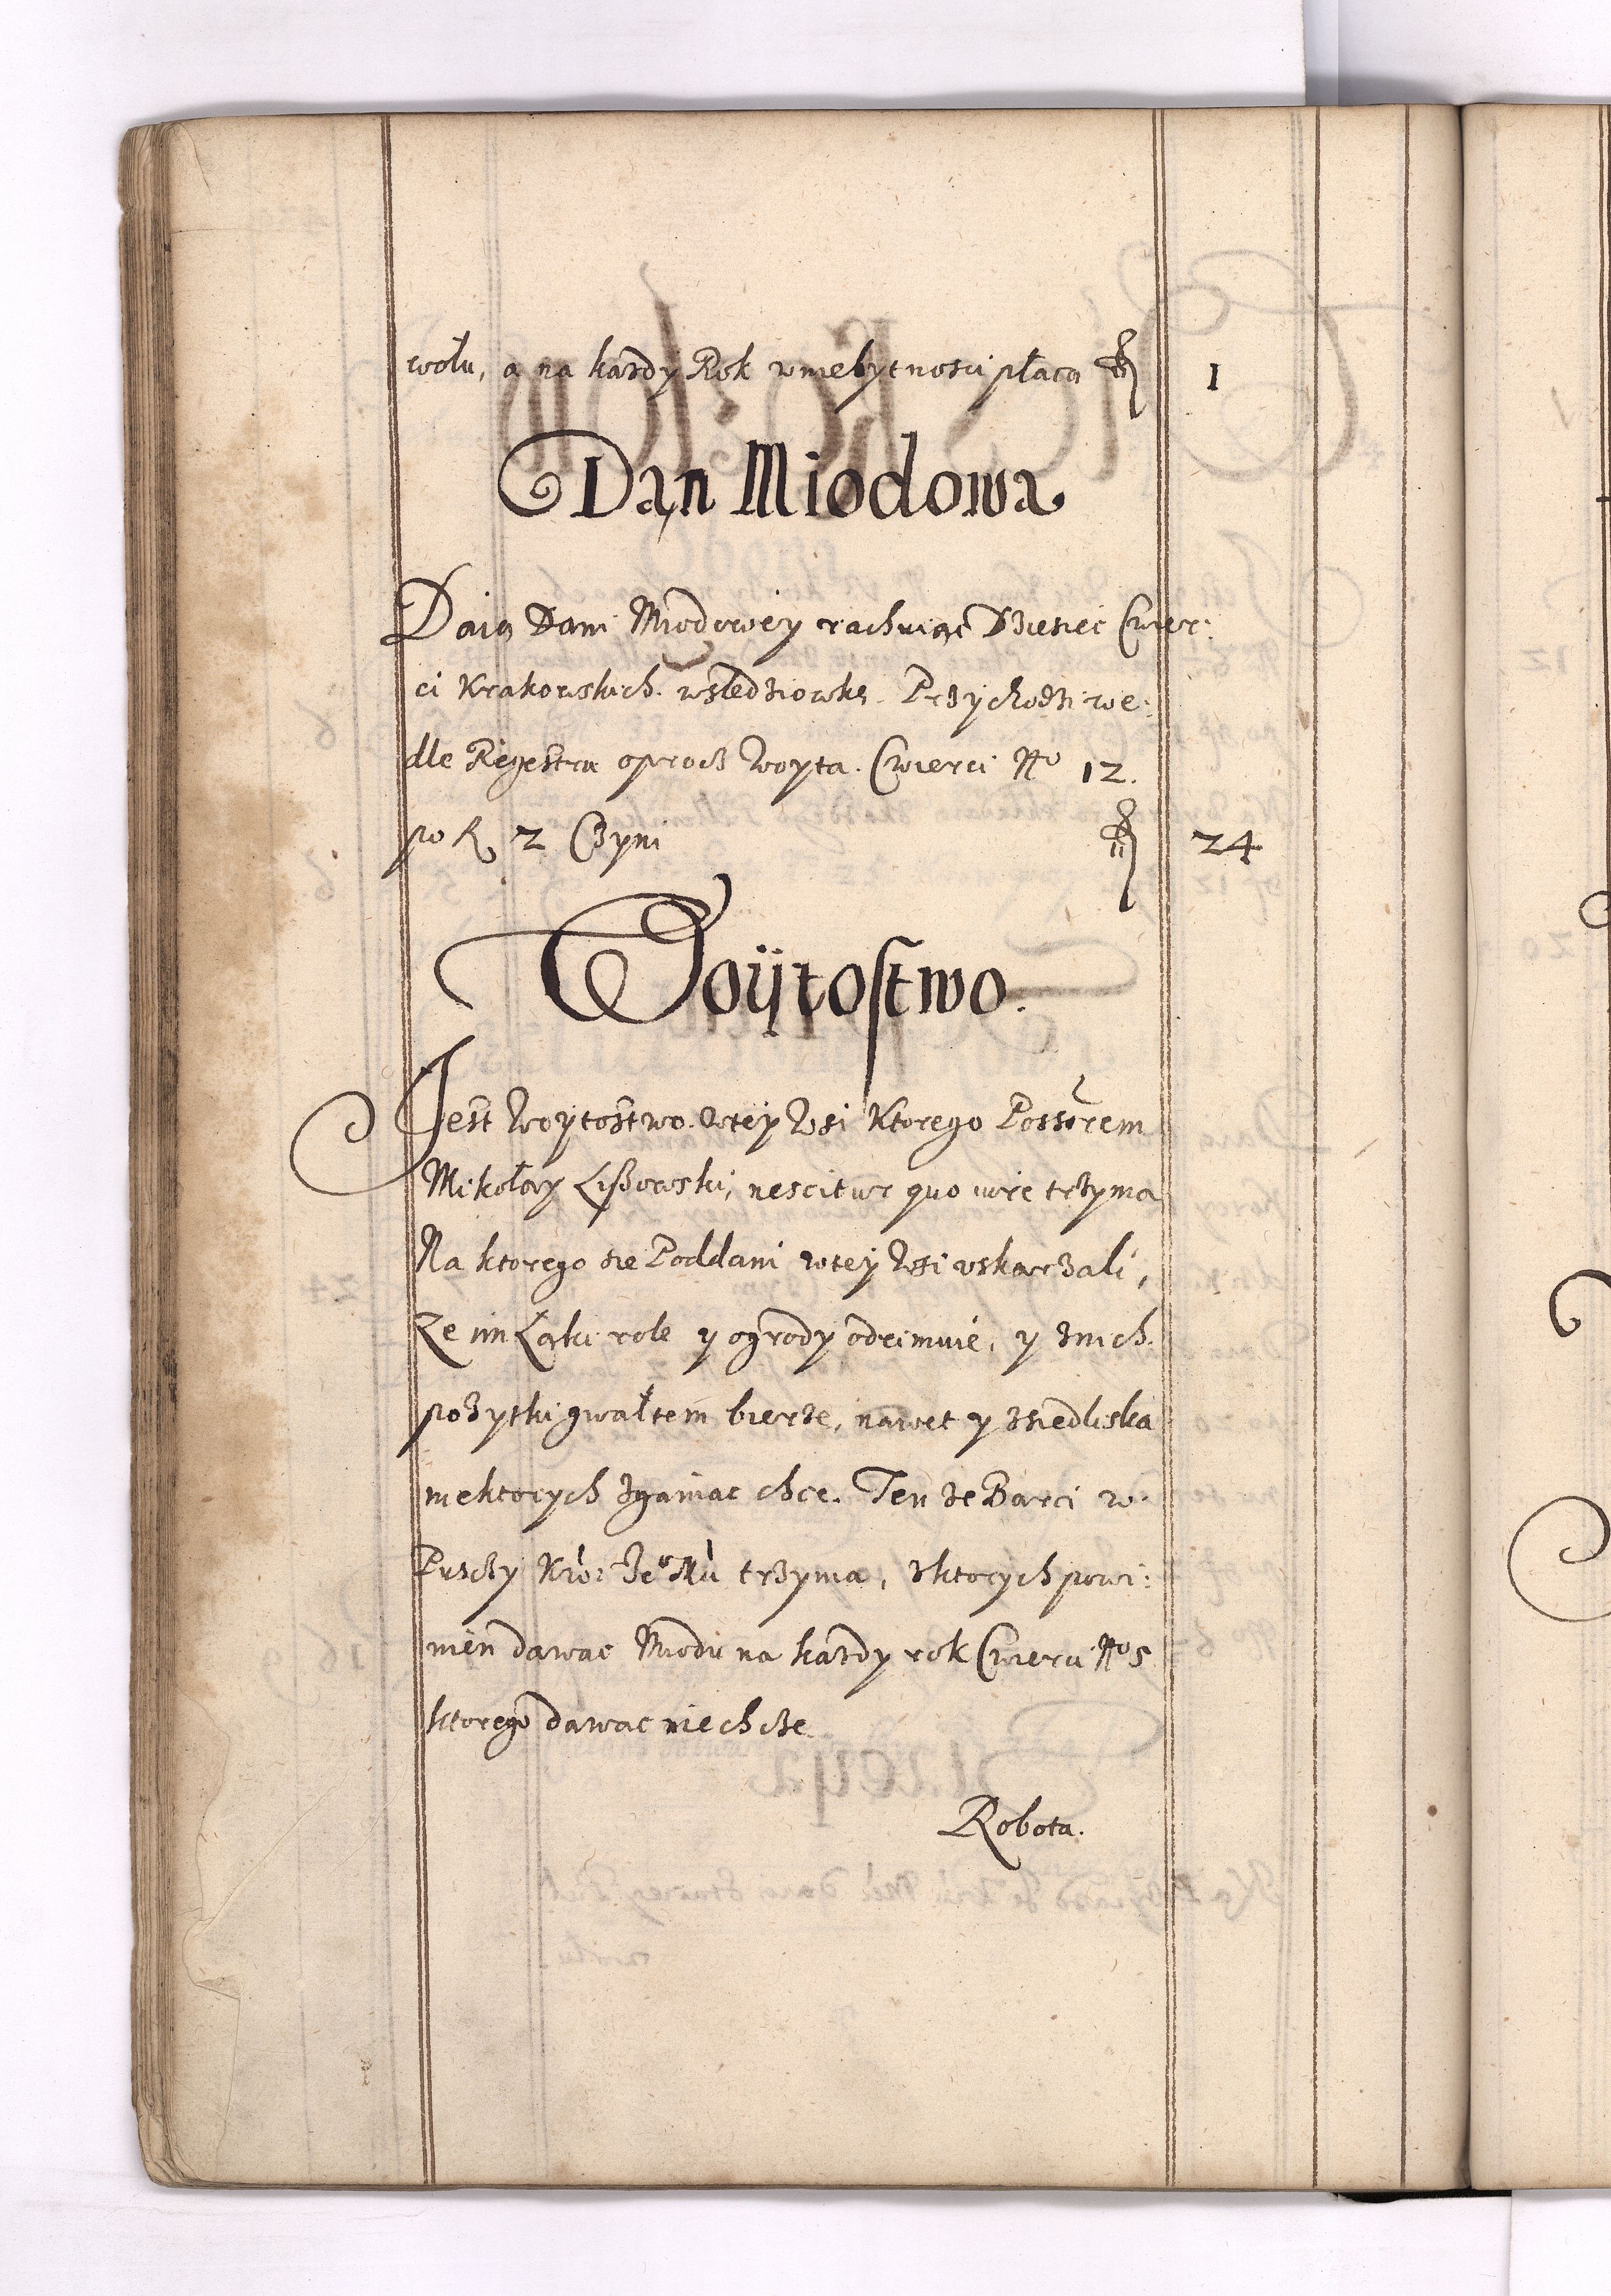 wołu, a na kaзdy Rok wniebytnosci płaca fl 1
Dąn Miodowa
Daią Dani Miodowey rachuiąc Dзiesiec Cwier:
ci Krakowskich. wsledзiowkę. Prзychodзi we:
dle Regestru oprocз Woyta. Cwierci No 12.
po fl 2 Cзyni fl 24
Woÿtostwo.
Jest Woytostwo wteÿ Wsi Ktorego Possorem
Mikołay Lißowski, nescitur quo iure trзyma
Na ktorego sie Poddani wteÿ Wsi uskarзali,
Ze im Łąki role y ogrody odeimuie, y зnich
poзytki gwałtem bierзe, nawet y зsiedliska
niektorych зganiac chce. Ten зe Barci w
Pusczy Kró: Je° Mći trзyma, зktorych powi:
nien dawac Miodu na kaзdy rok Cwierci No 5
ktorego dawac niechcзe
Robota.